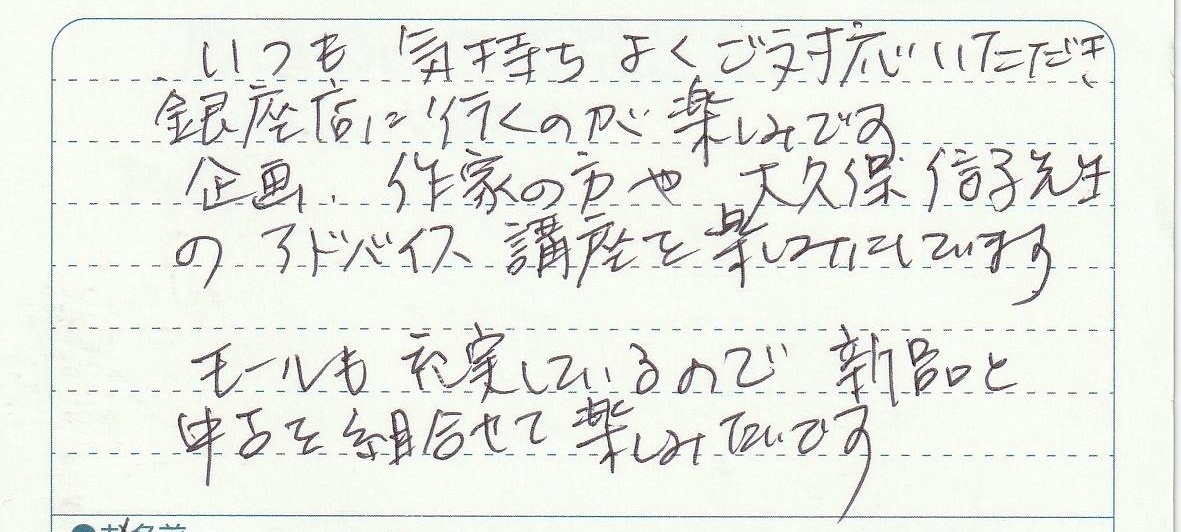 いつも 気持ち よくご対応いただき
銀座店に行くのが楽しみです
企画、作家の方や 大久保 信子先生
の アドバイス 講座を楽しみにしています
モールも 充実しているので 新品と
中古を組合せて楽しみたいです
●お名前